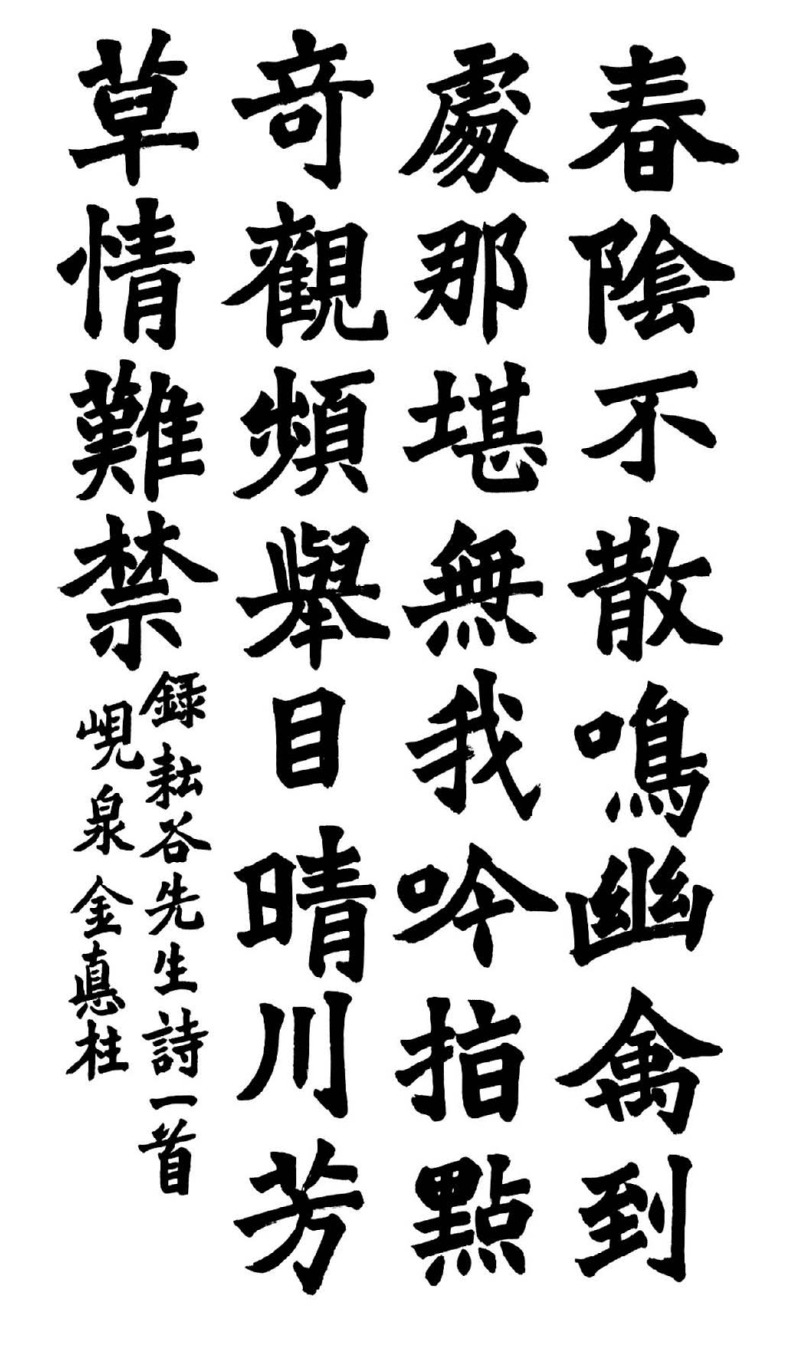 春陰不散鳴幽禽到
處那堪無我吟指點
奇觀頻舉目晴川芳
草情難禁
録耘谷先生詩一首
峴泉金悳柱